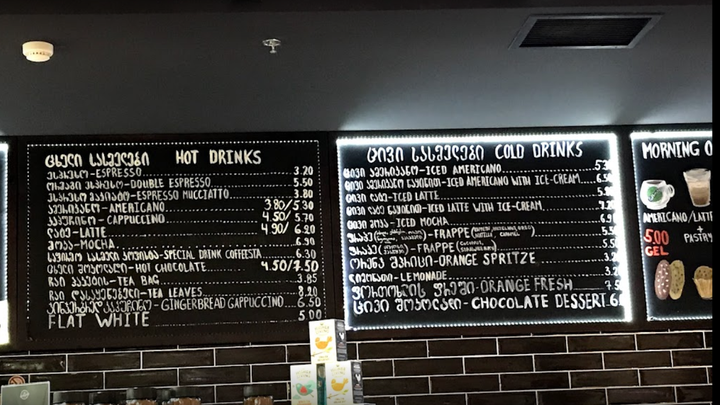 ცხელი სასმელები HOT DRINKS
ესპრესო-ESPRESSO 3.20
ორმაგი ესპრესო-DOUBLE ESPRESSO 5.50
ესპრესო მაკიატო-ESPRESSO MUCCIATTO 3.80
ამერიკანო-AMERICANO 3.80/5.30
კაპუჩინო-CAPPUCCINO 4.50/5.70
ლატე-LATTE 4.90/6.20
მოკა-MOCHA 6.90
საფირმო სასმელი კოფესტა-SPECIAL DRINK COFFEESTA 6.30
ცხელი შოკოლადი-HOT CHOCOLATE 4.50/7.50
ჩაი პაკეტის-TEA BAG 3.85
ჩაი დასაყენებელი-TEA LEAVES 8.20
GINGERBREAD CAPPUCCINO 6.50
FLAT WHITE 5.00
ცივი სასმელები COLD DRINKS
ცივი ამერიკანო-ICED AMERICANO
ცივი ამერიკანო ნაყინით-ICED AMERICANO WITH ICE-CREAM
ცივი ლატე-ICED LATTE
ცივი ლატე ნაყინით-ICED LATTE WITH ICE-CREAM
ცივი მოკა-ICED MOCHA
ფრაპე-FRAPPE
ფრაპე-FRAPPE
ORANGE SPRITZE
ლიმონათი-LEMONADE
ფორთოხლის ფრეში-ORANGE FRESH
ცივი შოკოლადი-CHOCOLATE DESSERT
MORNING
AMERICANO/LATTE
+
PASTRY
5.00
GEL